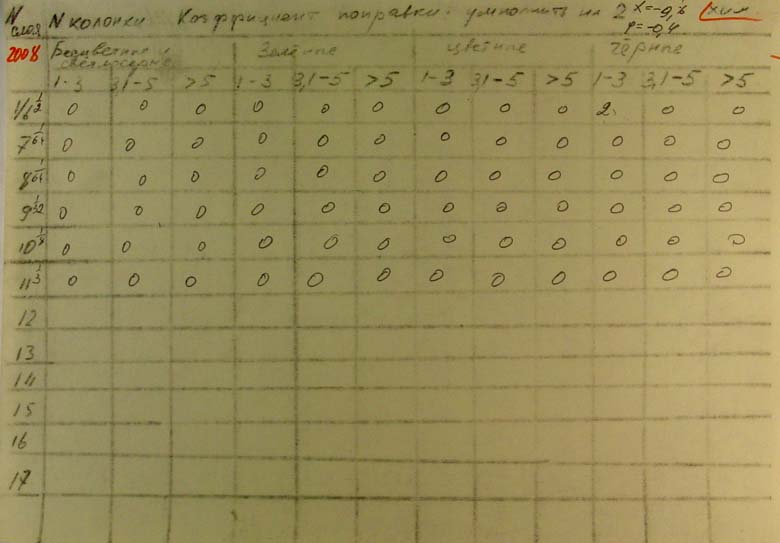 N слоя N колонки Коэффициент поправки: умножить на 2 x=-0,6 y=-0,4 Хим.
2008 Бесцветные и светлосерые Зелёные цветные чёрные
1-3 3,1-5 >5 1-3 3,1-5 >5 1-3 3,1-5 >5 1-3 3,1-5 >5
0 0 0 0 0 0 0 0 0 2 0 0
7 1/64 0 0 0 0 0 0 0 0 0 0 0 0
8 1/64 0 0 0 0 0 0 0 0 0 0 0 0
9 1/32 0 0 0 0 0 0 0 0 0 0 0 0
10 1/8 0 0 0 0 0 0 0 0 0 0 0 0
11 1/3 0 0 0 0 0 0 0 0 0 0 0 0
12
13
14
15
16
17